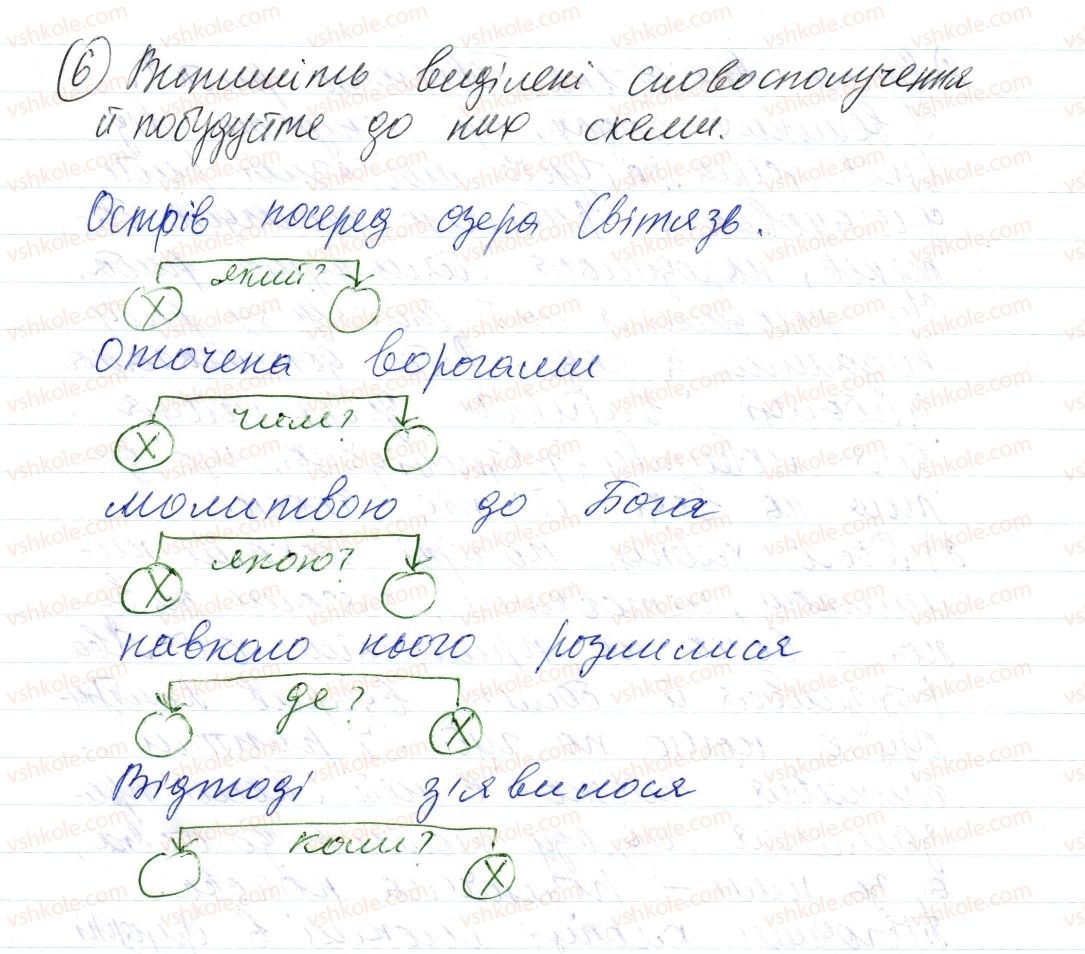 6 Випишіть виділені словосполучення
й побудуйте до них схеми.
Острів посеред озера Світязь.
який?
X
Оточена ворогами
чим?
X
молитвою до Бога
якою?
X
навколо нього розлилися
де?
X
Відтоді з'явилося
коли?
X